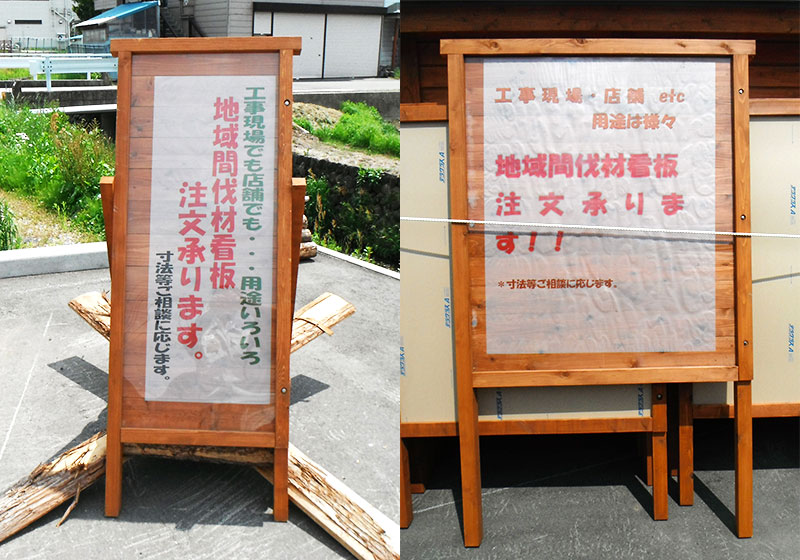 工事現場でも店舗でも・・・用途いろいろ
地域間伐材看板
注文承ります。
寸法等ご相談に応じます。
工事現場・店舗 etc
用途は様々
地域間伐材看板
注文承りま
す！！
＊寸法等ご相談に応じます。